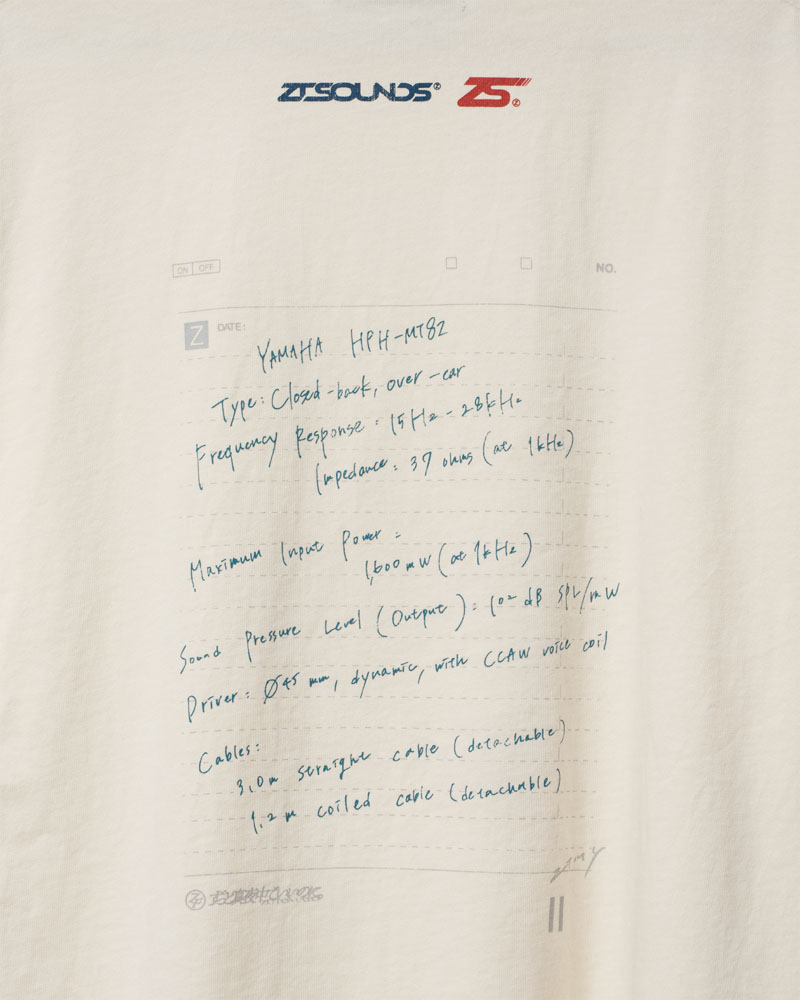 ZTSOUNDS® ZS
ON OFF
NO.
Z DATE:
YAMAHA HPH-MT82
Type: Closed-back, over-ear
Frequency Response: 15Hz - 28kHz
Impedance: 37 ohms (at 1kHz)
Maximum Input Power:
1,600 mW (at 1kHz)
Sound Pressure Level (Output): 102 dB SPL/mW
Driver: Ø45 mm, dynamic, with CCAW voice coil
Cables:
3.0m straight cable (detachable)
1.2 m coiled cable (detachable)